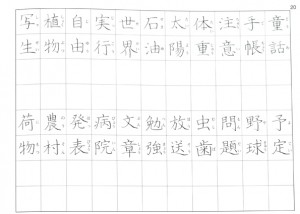 童話
手帳
注意
体重
太陽
石油
世界
実行
自由
植物
写生
予定
野球
問題
虫歯
放送
勉強
文章
病院
発表
農村
荷物